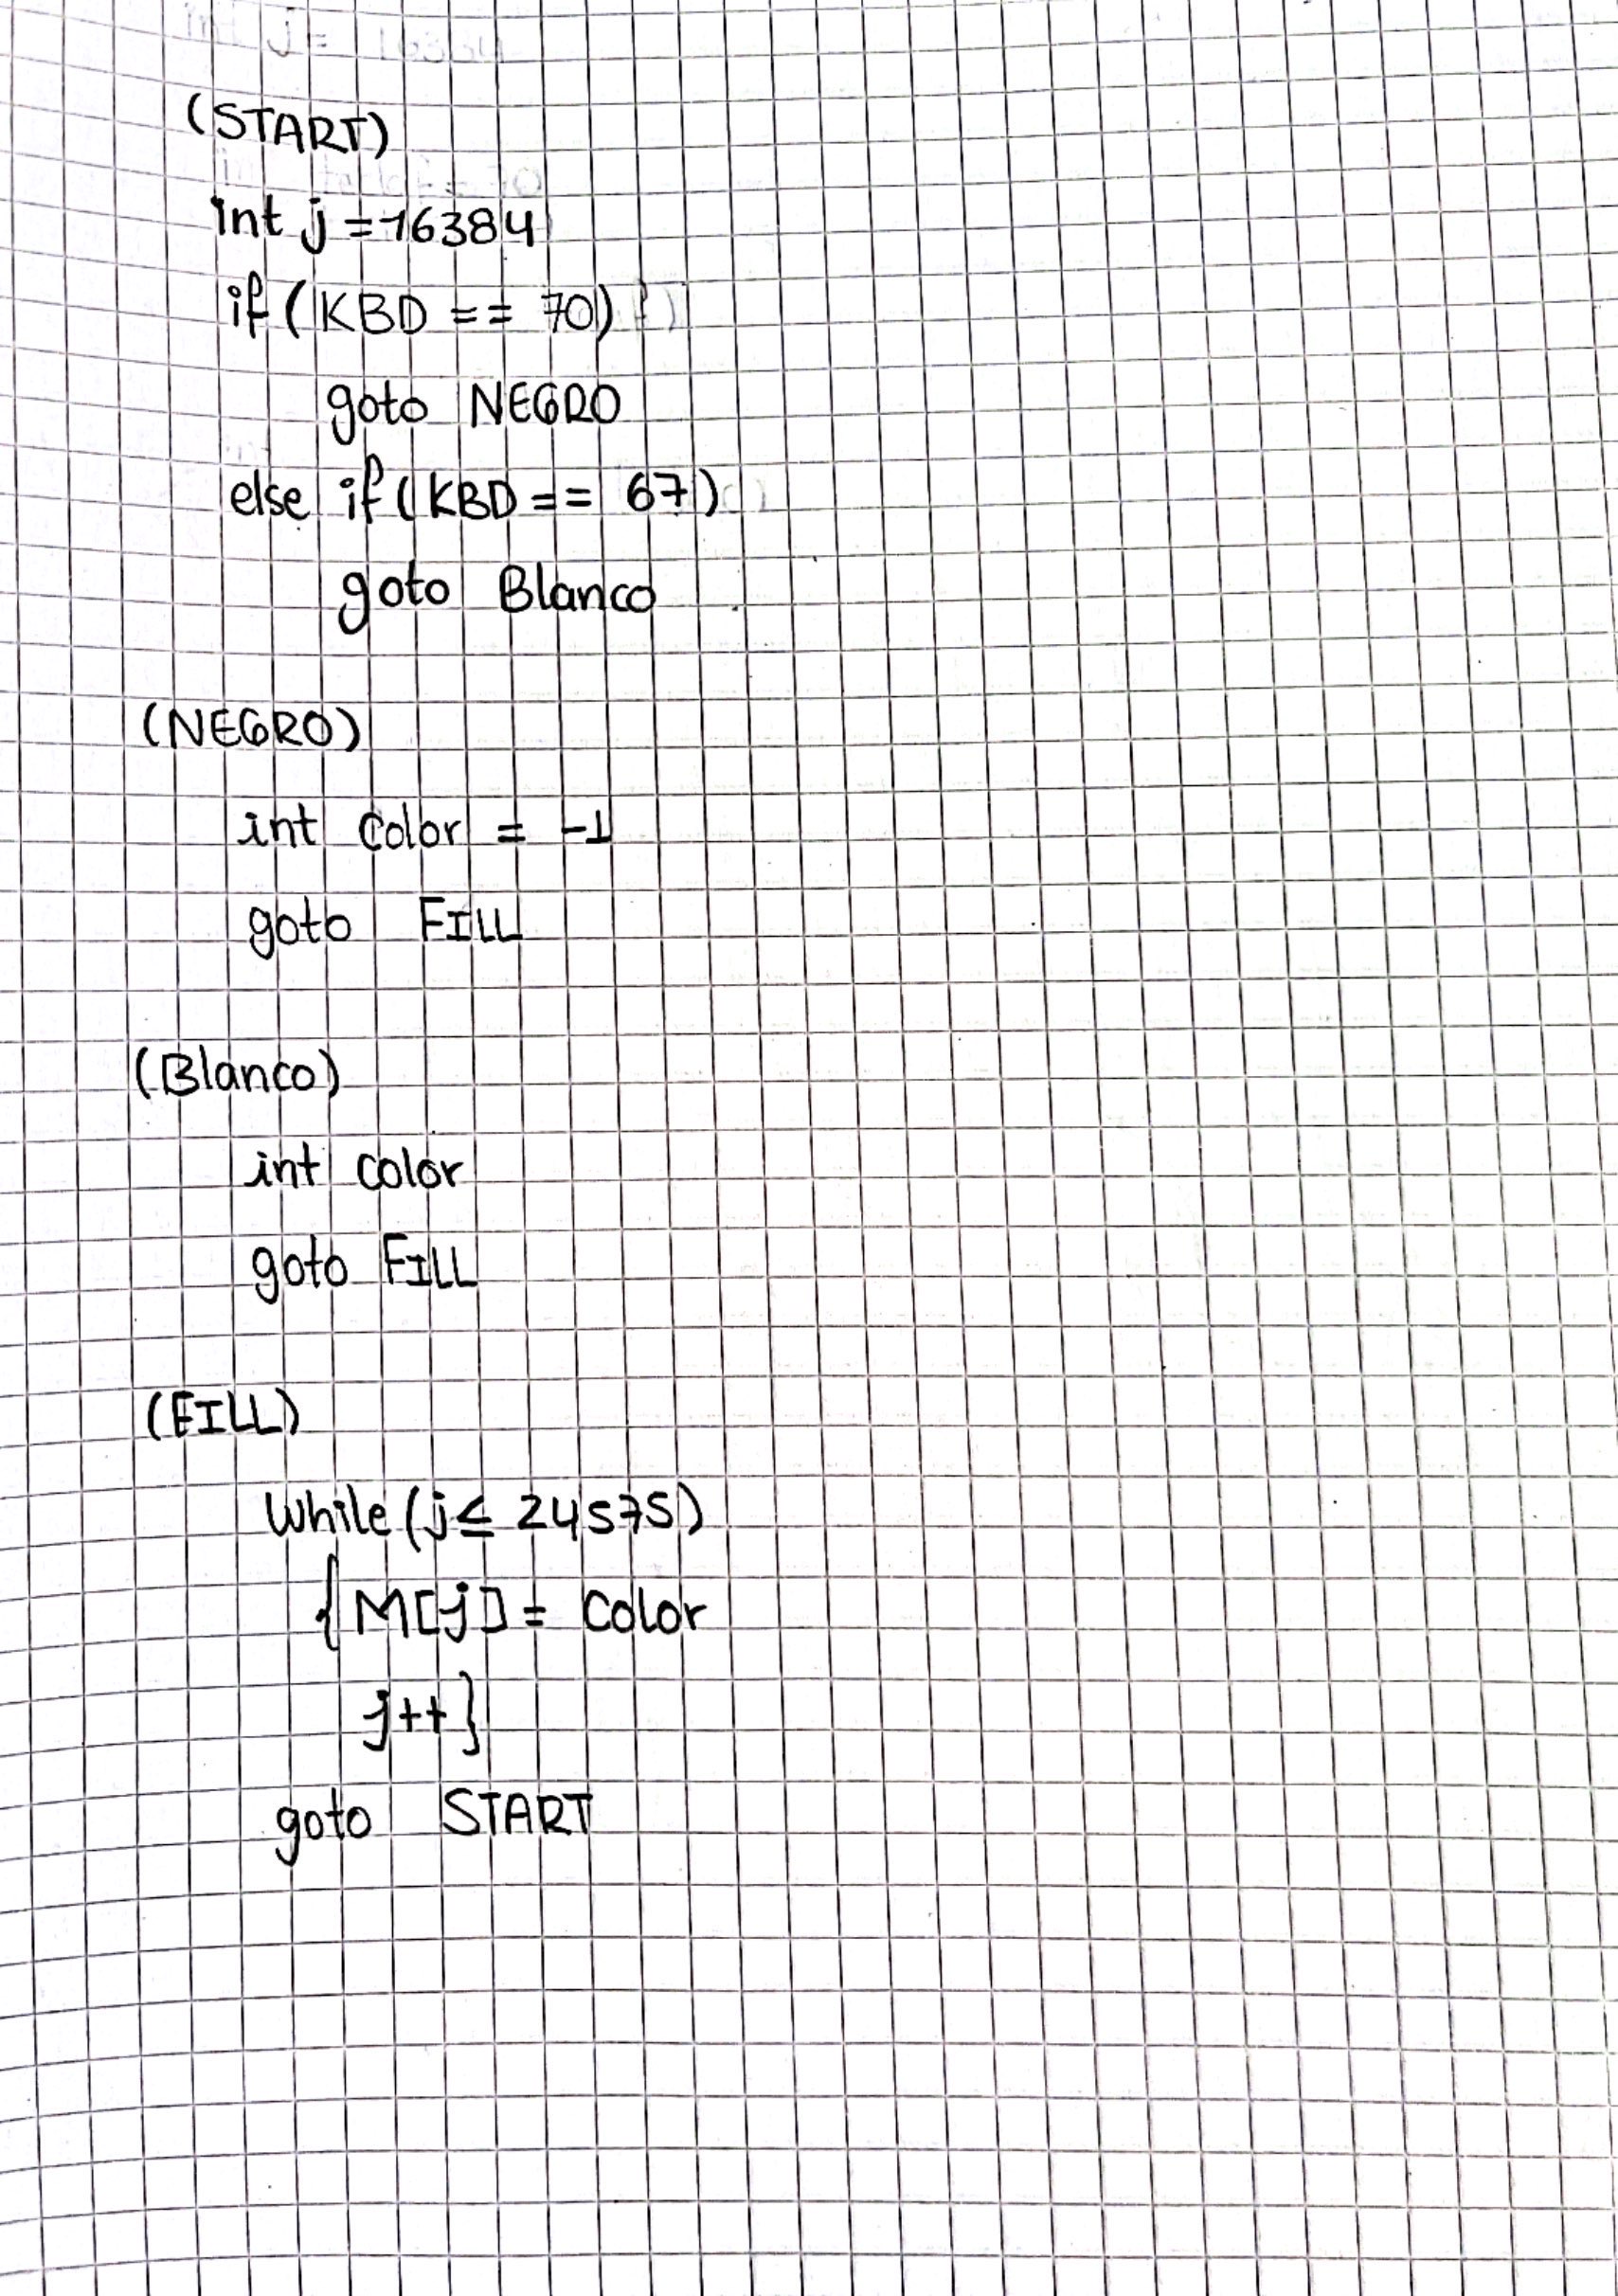 (START)
int j = 16384
if (KBD == 70)
goto NEGRO
else if (KBD == 67)
goto Blanco
(NEGRO)
int color = -1
goto FILL
(Blanco)
int color
goto FILL
(FILL)
While (j ≤ 24575)
{ M[j] = Color
j++}
goto START